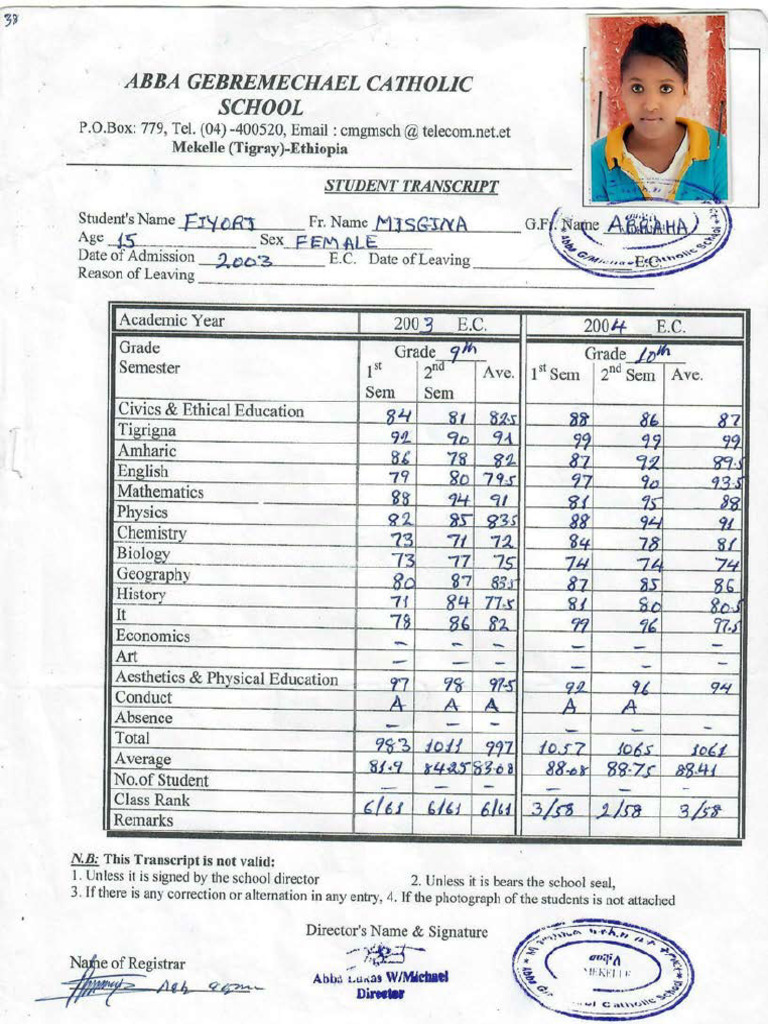 33
ABBA GEBREMECHAEL CATHOLIC
SCHOOL
P.O.Box: 779, Tel. (04) -400520, Email : cmgmsch @ telecom.net.et
Mekelle (Tigray)-Ethiopia
STUDENT TRANSCRIPT
Student's Name FIYORI Fr. Name MISGINA G.Fr. Name ABRAHA
Age 15 Sex FEMALE
Date of Admission 2003 E.C. Date of Leaving E.C.
Reason of Leaving
Academic Year 2003 E.C. 2004 E.C.
Grade Grade 9th Grade 10th
Semester 1st Sem 2nd Sem Ave. 1st Sem 2nd Sem Ave.
Civics & Ethical Education 84 81 82.5 88 86 87
Tigrigna 92 90 91 99 99 99
Amharic 86 78 82 87 92 89.5
English 79 80 79.5 97 90 93.5
Mathematics 88 94 91 81 95 88
Physics 82 85 83.5 88 94 91
Chemistry 73 71 72 84 78 81
Biology 73 77 75 74 74 74
Geography 80 87 83.5 87 85 86
History 71 84 77.5 81 80 80.5
It 78 86 82 99 96 97.5
Economics - - - - - -
Art - - - - - -
Aesthetics & Physical Education 97 98 97.5 92 96 94
Conduct A A A A A
Absence - - - - - -
Total 983 1011 997 1057 1065 1061
Average 81.9 84.25 83.08 88.08 88.75 88.41
No.of Student - - - - - -
Class Rank 6/61 6/61 6/61 3/58 2/58 3/58
Remarks
N.B: This Transcript is not valid:
1. Unless it is signed by the school director 2. Unless it is bears the school seal,
3. If there is any correction or alternation in any entry, 4. If the photograph of the students is not attached
Director's Name & Signature
Name of Registrar
Abba Lukas W/Michael
Director
መቐለ
MEKELLE
Catholic School